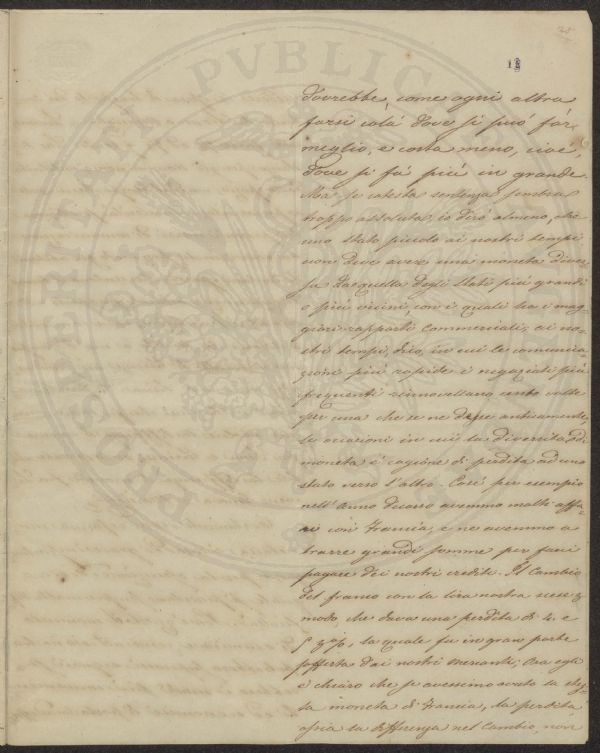 18
dovrebbe, come ogni altra
farsi colà dove si può far
meglio, e costa meno, cioè,
dove si fà più in grande.
Ma se cotesta sentenza sembra
troppo assoluta, io dirò almeno, che
uno stato piccolo ai nostri tempi
non deve avere una moneta diver=
sa da quella degli Stati più grandi
e più vicini, con i quali ha i mag=
giori rapporti Commerciali; ai no=
stri tempi, dico, in cui le comunica=
zioni più rapide e i negoziati più
frequenti rinnovellano cento volte
per una che se ne desse anticamente,
le occasioni in cui la diversità di
moneta è cagione di perdita ad uno
stato verso l'altro. Così per esempio
nell'Anno decorso avemmo molti affa=
ri con Francia, e ne avemmo a
trarre grandi somme per farci
pagare dei nostri crediti. Il Cambio
del franco con la lira nostra scese
modo, che dava una perdita di 4. e
5 %, la quale fu in gran parte
sofferta dai nostri mercanti; Ora egli
è chiaro che se avessimo avuto la stes=
sa moneta di Francia, la perdita
ossia la differenza nel Cambio, non
PROSPERITATI PVBLIC